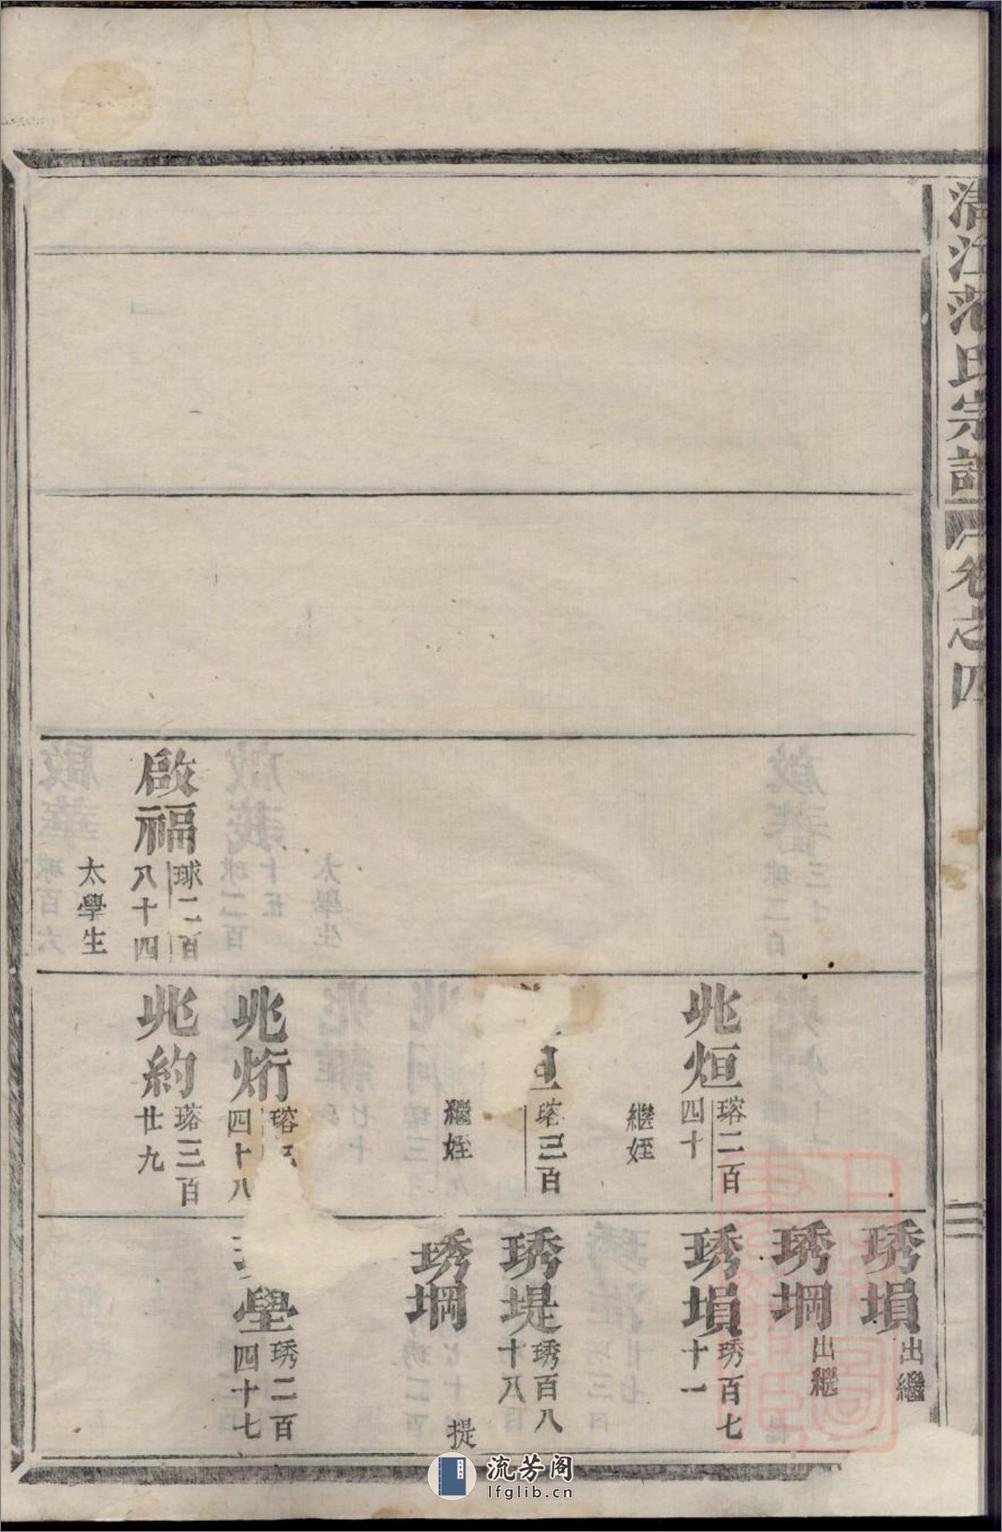 清江范氏宗譜 卷之四
三
啟福 球二百八十四
太學生
兆烜 瑢二百四十
繼姪
瑢三百
繼姪
兆烆 四十八
兆約 瑢三百廿九
琇塤 出繼
琇堈 出繼
琇塤 琇百七十一
琇堤 琇百八十八
琇堈 提
壆 琇二百四十七
流芳阁
lfglib.cn